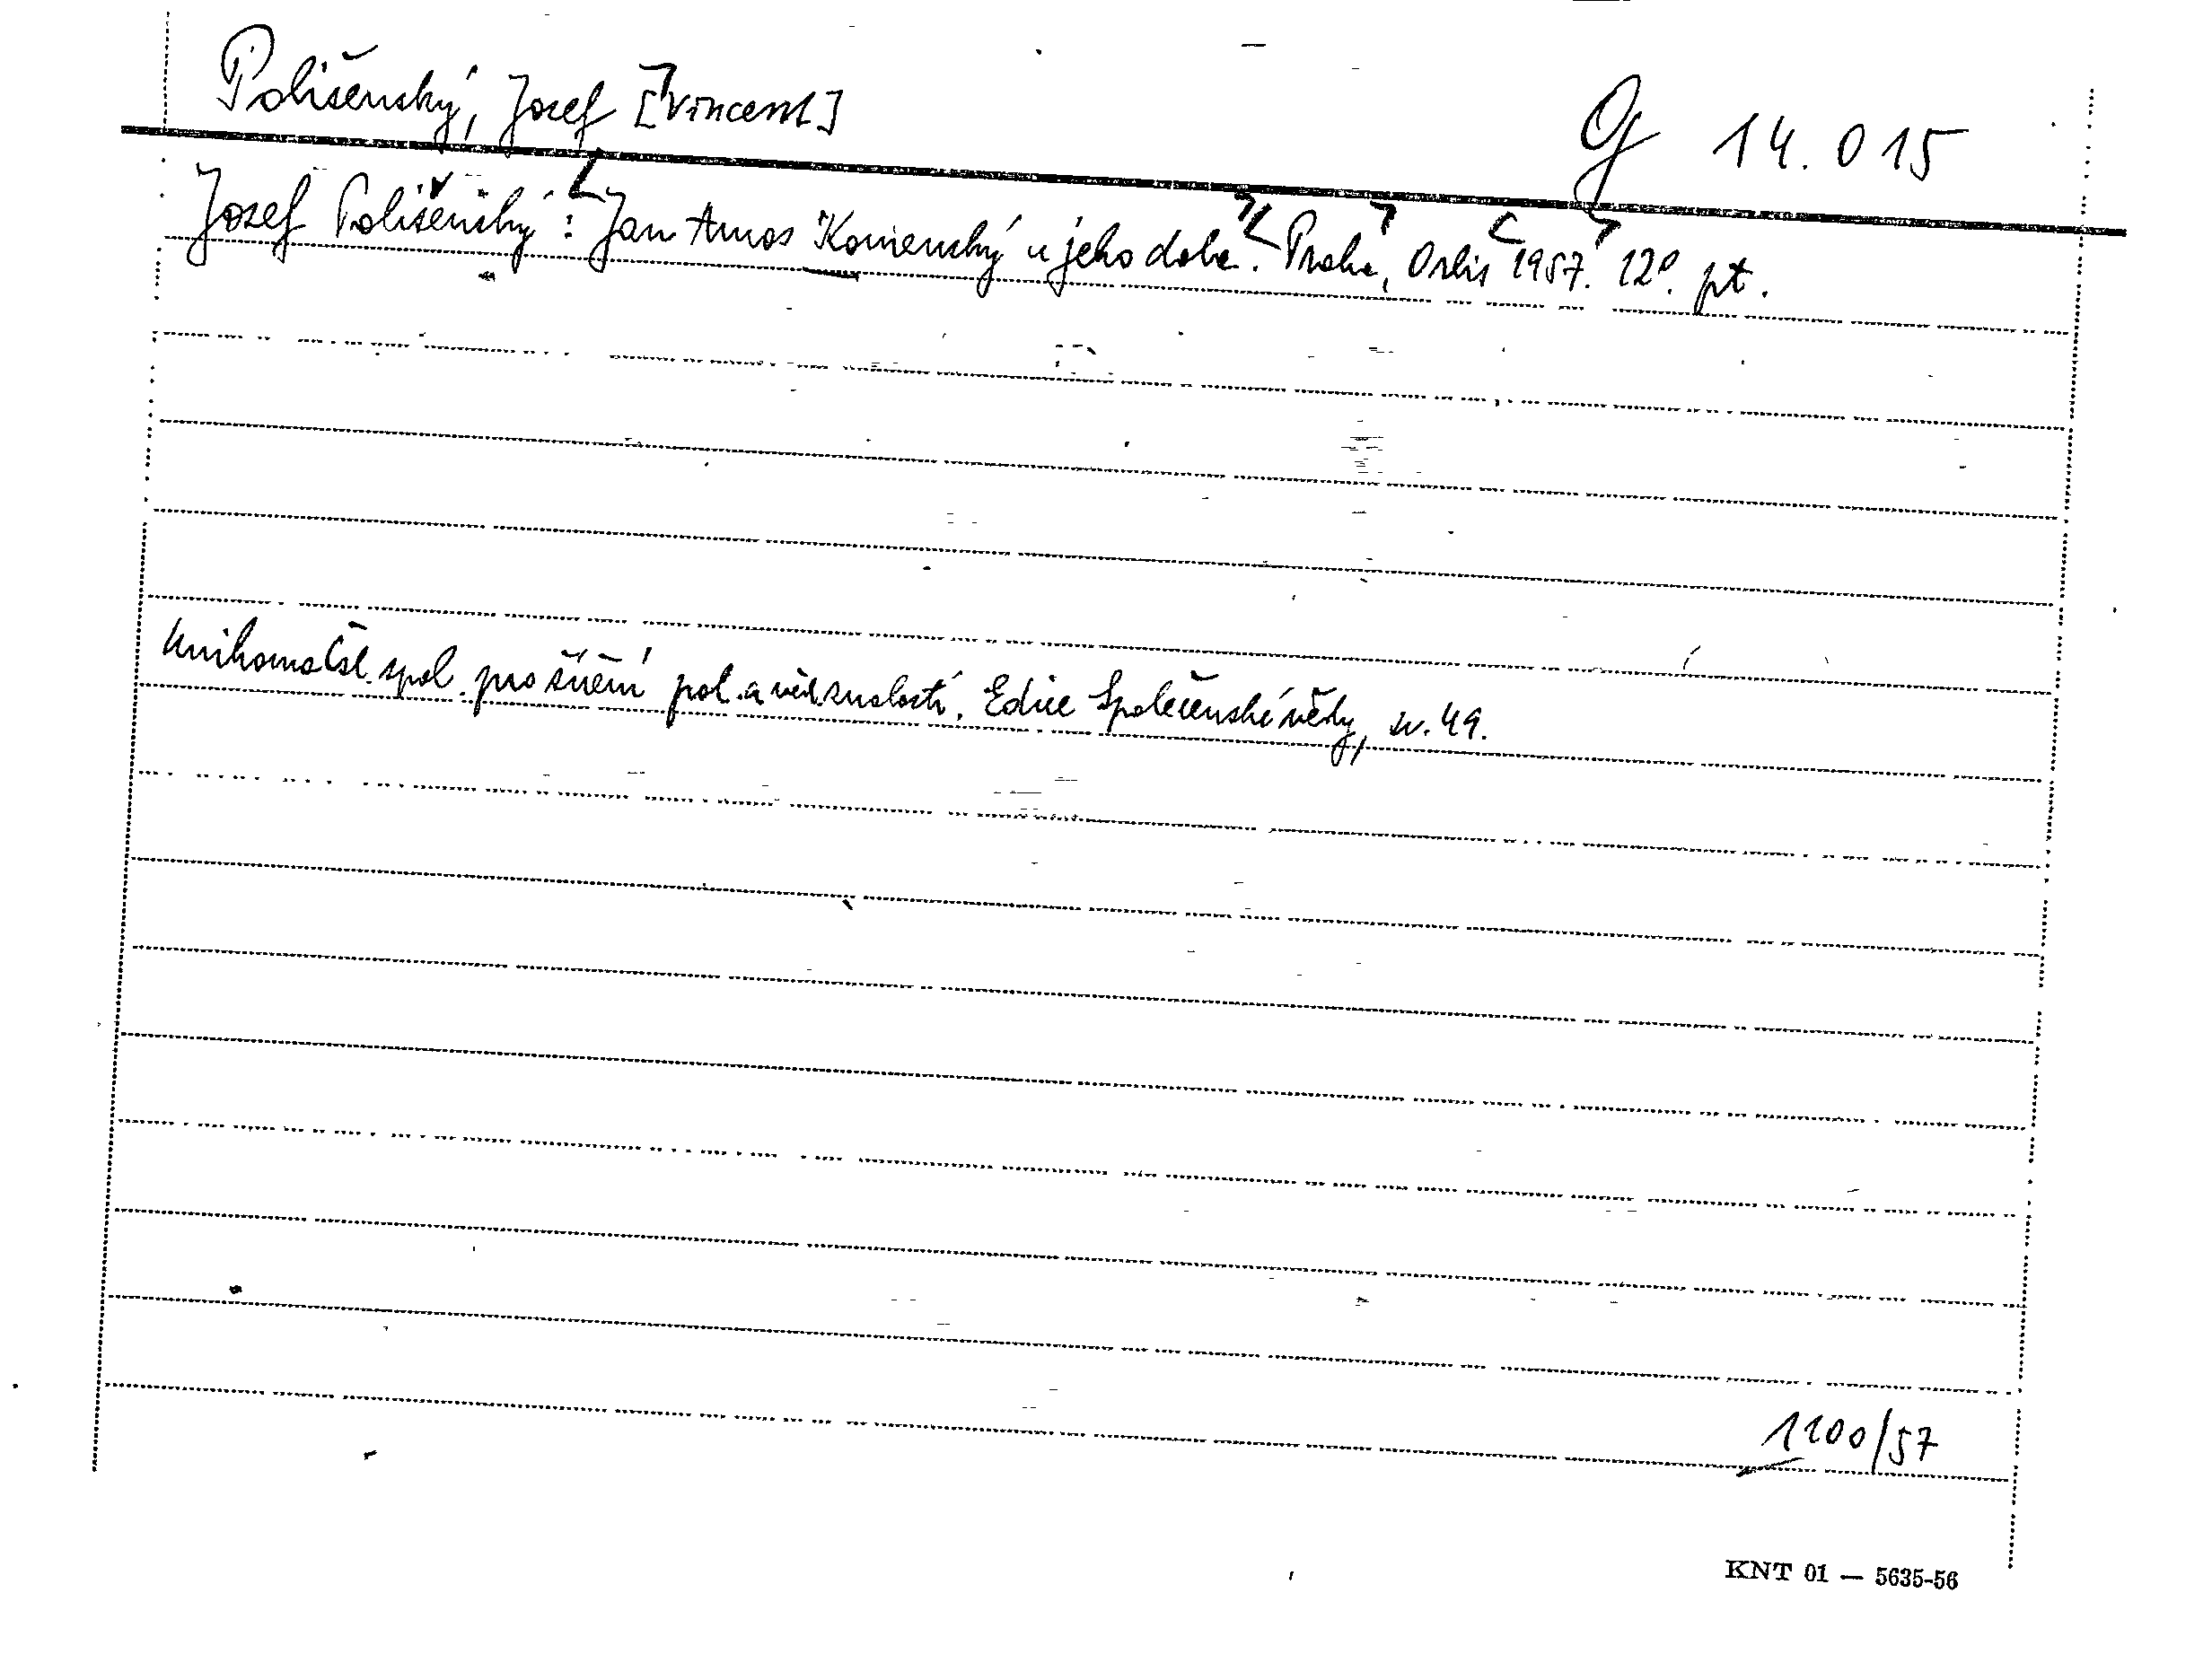 Polišenský, Josef [Vincent]
G 14.015
Josef Polišenský: Jan Amos Komenský a jeho doba. Praha, Orbis 1957. 12°. pt.
Knihovna Čsl. spol. pro šíření pol. a věd. znalostí. Edice Společenské vědy, sv. 49.
1100/57
KNT 01 — 5635-56